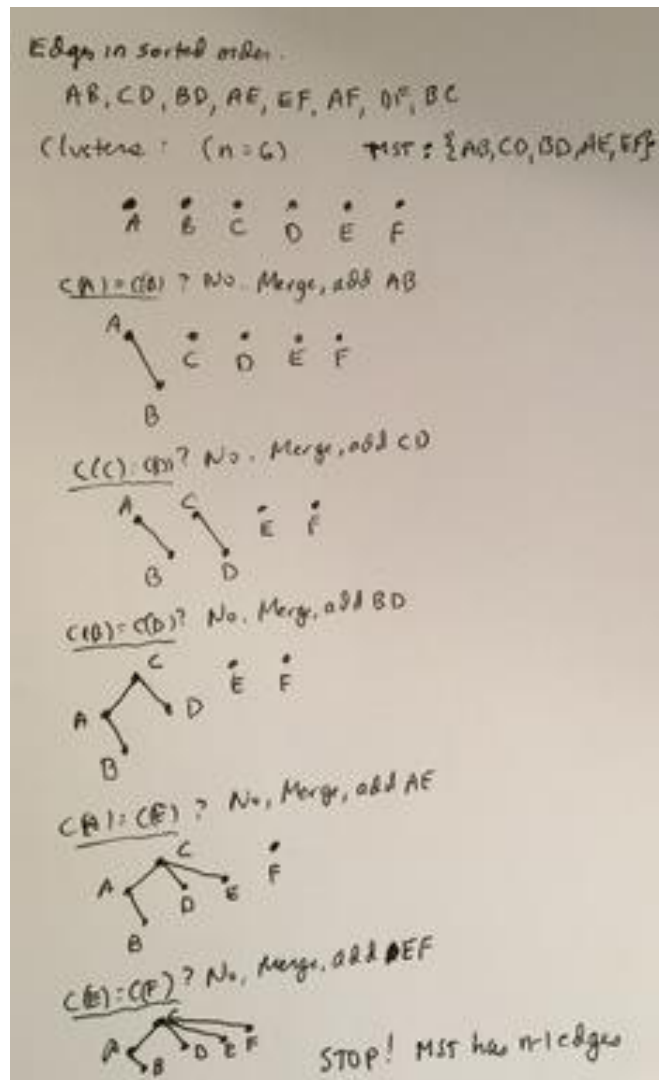 Edges in sorted order.
AB, CD, BD, AE, EF, AF, DF, BC
Clusters: (n=6) MST: {AB, CD, BD, AE, EF}
A B C D E F
C(A)=C(B)? No. Merge, add AB
A
C D E F
B
C(C)=C(D)? No. Merge, add CD
A C
E F
B D
C(B)=C(D)? No. Merge, add BD
C
E F
A D
B
C(A)=C(E)? No, Merge, add AE
C
F
A D E
B
C(E)=C(F)? No, Merge, add EF
C
A B D E F
STOP! MST has n-1 edges